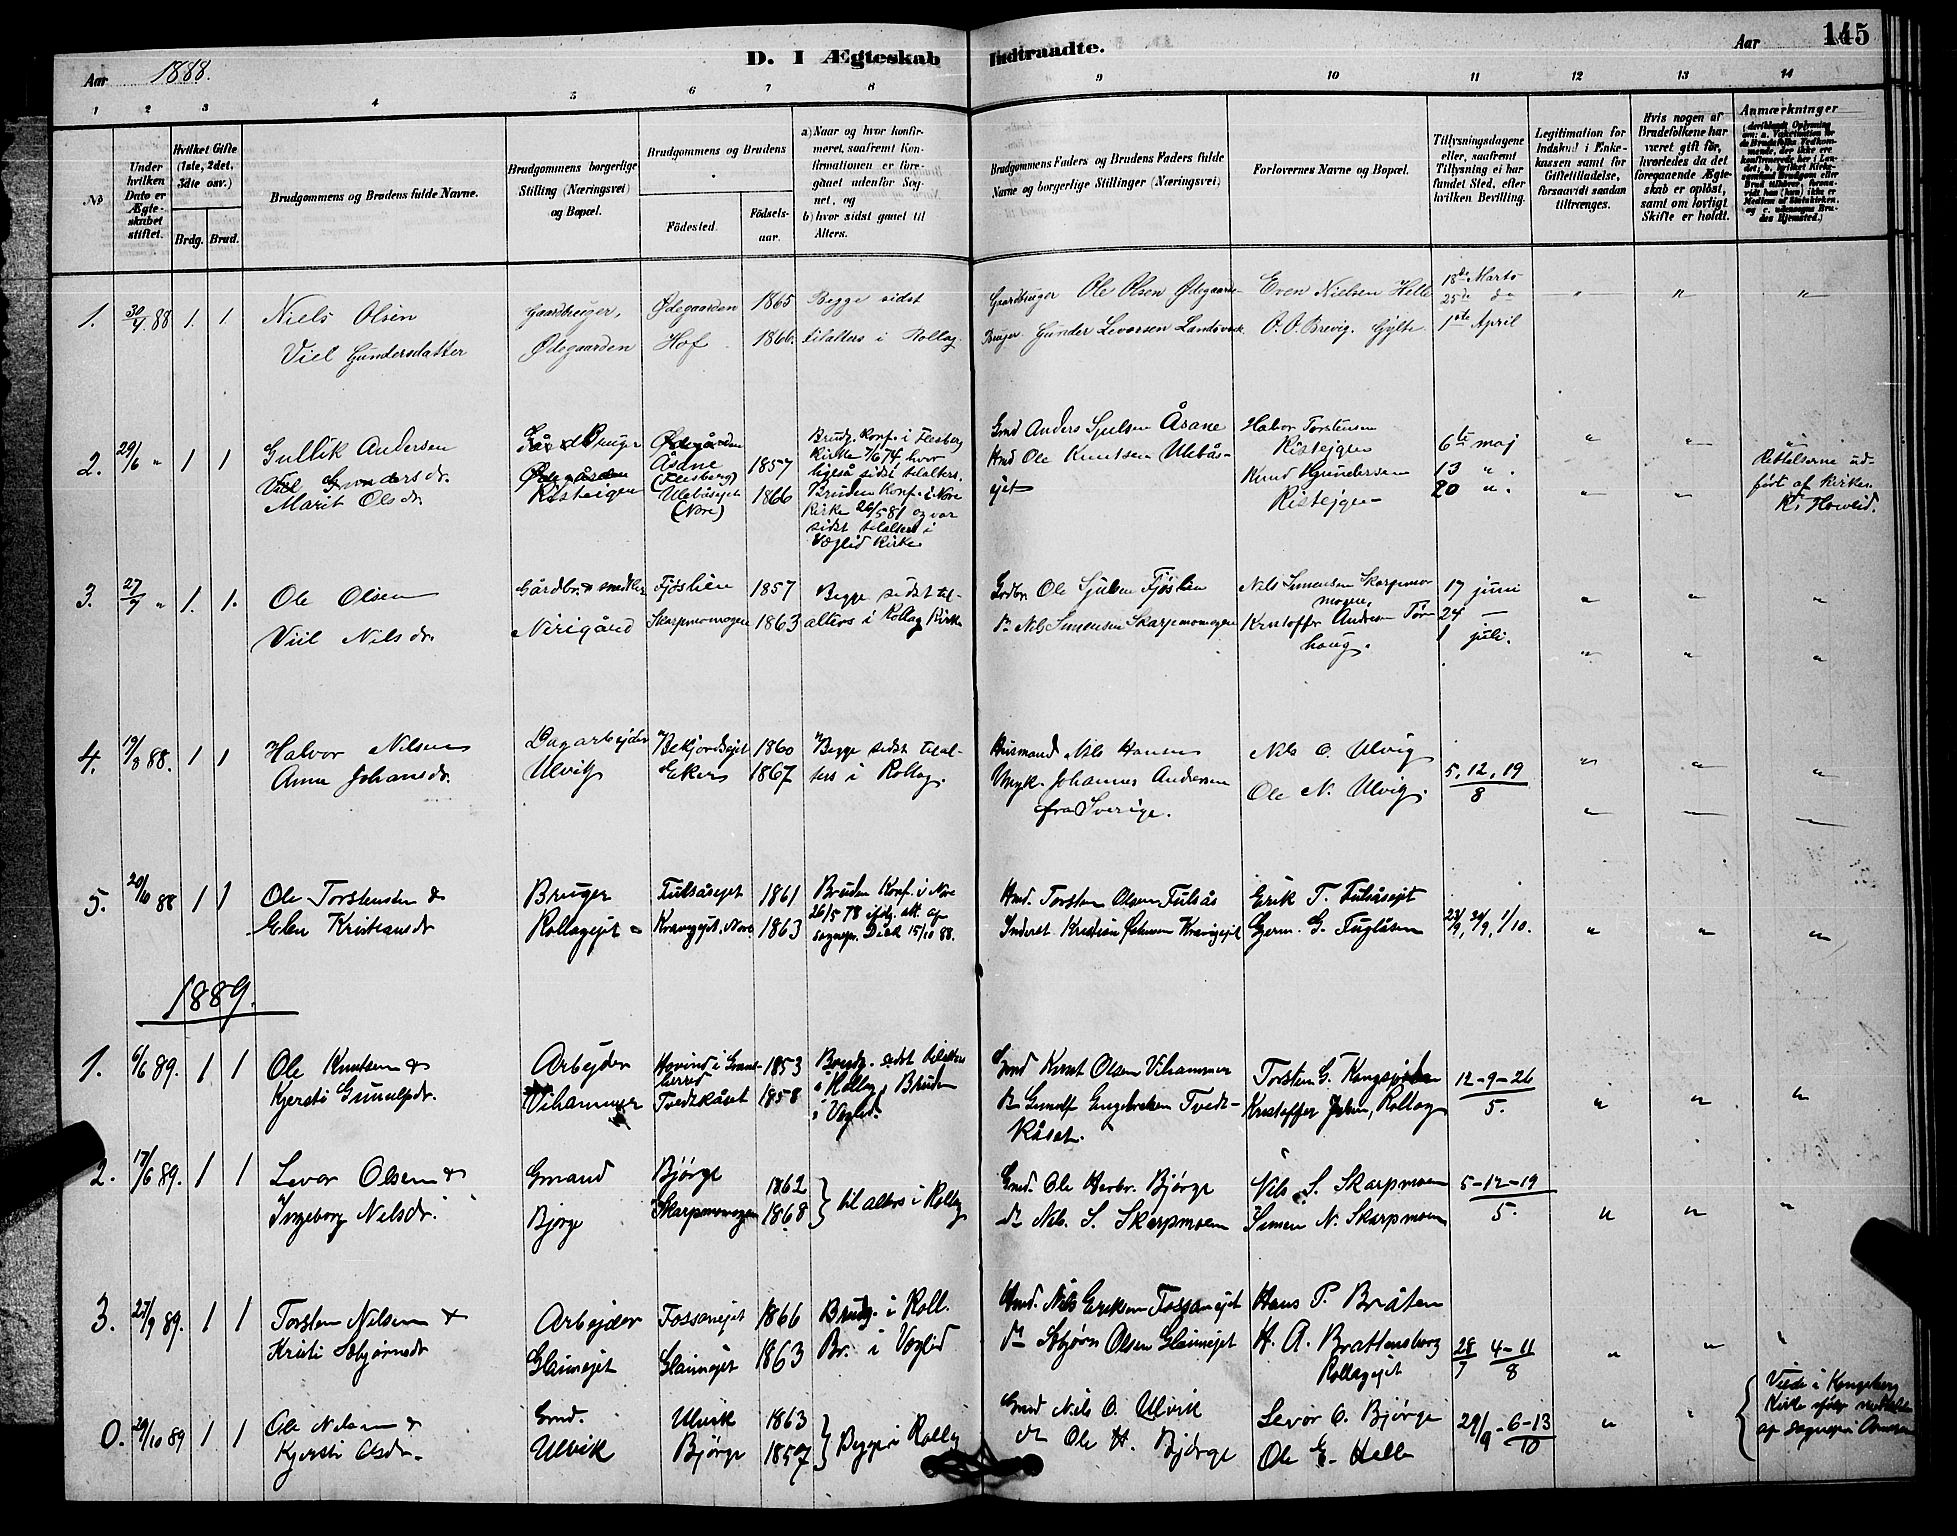 145
D. I Ægteskab Indtraadte.
Aar 1888. Aar
1 2 3 4 5 6 7 8 9 10 11 12 13 14
No
Under hvilken Dato er Ægteskabet stiftet.
Hvilket Gifte (1ste, 2det, 3die osv.)
Brdg. Brud.
Brudgommens og Brudens fulde Navne.
Brudgommens borgerlige Stilling (Næringsvei) og Bopæl.
Brudgommens og Brudens
Fødested. Fødselsaar.
a) Naar og hvor konfirmeret, saafremt Konfirmationen er foregaaet udenfor Sognet, og
b) hvor sidst gaaet til Alters.
Brudgommens Faders og Brudens Faders fulde Navne og borgerlige Stillinger (Næringsvei)
Forlovernes Navne og Bopæl.
Tillysningsdagene eller, saafremt Tillysning ei har fundet Sted, efter hvilken Bevilling.
Legitimation for Indskud i Enkekassen samt for Giftetilladelse, forsaavidt saadan tiltrænges.
Hvis nogen af Brudefolkene har været gift før, hvorledes da det foregaaende Ægteskab er opløst, samt om lovligt Skifte er holdt.
Anmærkninger
1. 30/4 88 1. 1. Niels Olsen Gaardbruger, Ødegaarden 1865 Begge sidst Gaardbruger Ole Olsen Ødegaarden Even Nielsen Helle 18de Marts
25de do
Viel Gundersdatter Ødegaarden Hof 1866. tilalters i Rollag. Bruger Gunder Levorsen Landsverk O. O. Brevig. Gjylte 1ste April
2. 29/6 " 1 1 Gullik Andersen Gårdbruger Ødegården Brudg. Konf. i Flesberg Gmd Anders Sjulsen Åsane Halvor Torstensen 6te maj
Viel Gundersdr. Ødegården Åsane (Flesberg) 1857 Kirke 7/6 74 hvor ligeså sidst tilalters. Hmd Ole Knutsen Ulebås- Ristejgen 13 "
Marit Olsdr. Risteigen Ulebåsejet (Nore) 1866 Bruden Konf. i Nore ejet Knud Gundersen 20 "
Kirke 26/5 81 og var Ristejgen
sidst tilalters i
Veglid Kirke
Rettelserne udført af Kirkes. K. Hovlid.
3. 27/7 " 1. 1. Ole Olsen Gårdbr. & smedker Fjøslien 1857 Begge sidst til- Grdbr. Ole Sjulsen Fjøslien Nils Simensen Skarpmomogen, 17 juni
Viil Nilsdr. Nerigård Skarpmomogen 1863 alters i Rollag Kirke do Nils Simensen Skarpmomogen Kristoffer Andersen Tørhaug. 24 —
1 juli.
4. 19/8 88. 1 1 Halvor Nilsen Dagarbejder Bekjordsejet 1860 Begge sidst tilal- Husmand Nils Hansen Nils O. Ulvig
Anne Johansdr. Ulvik Eker 1867 ters i Rollag. Ungk. Johannes Andersen Ole N. Ulvig. 5, 12, 19/8
fra Sverige.
5. 20/10 88 1 1 Ole Torstensen & Bruger Fulsåsejet 1861 Bruden Konf. i Nore Hmd. Torsten Olsen Fulsås Erik T. Fulsåsejet
Elen Kristiansdr Rollagejet Kravigejet, Nore 1863 26/5 78 ifølg. att. af sognepr. Dick 15/10 88. Inderst Kristian Kravigejet G. Fuglåsen 23/9, 30/9, 1/10.
1889.
1. 6/6 89. 1 1 Ole Knutsen & Arbejder Hovind i Gransherred 1853 Brudg. sidst tilalters Gmd Knut Olsen Vihammer Torsten G. Kongsjorden 12-9-26/5.
Kjersti Gunulfsdr. Vihammer Tvedtkåset 1858 i Rollag, Bruden i Veglid. do Gunulf Engebretsen Tvedt- Kristoffer Rollag
kåset.
2. 17/6 89. 1 1 Levor Olsen & Gmand Bjørge 1862 Gmd. Ole Herbr. Bjørge Nils S. Skarpmoen 5-12-19/5.
Ingeborg Nilsdr. Bjørge Skarpmomogen 1868 til alters i Rollag do Nils S. Skarpmoen Simen N. Skarpmoen
3. 27/9 89. 1 1 Torsten Nilsen & Arbejder Fossanejet 1866 Brudg. i Roll. Hmd. Nils Eriksen Fossanejet Hans P. Bråten
Kristi Asbjørnsdr Glaimejet Glaimejet 1863 Br. i Veglid do Asbjørn Olsen Glaimejet H. A. Brattensborg 28/7 4-11/8
Rollagejet
0. 29/10 89 1 1 Ole Nilsen & Gmd. Ulvik 1863 Gmd Nils O. Ulvik Levor O. Bjørge 29/9 - 6-13/10
Kjersti Olsdr. Ulvik Bjørge 1857 Begge i Rollag do Ole H. Bjørge Ole E. Helle
Viede i Kongsberg Kirke ifølge meddelelse af sognepr.